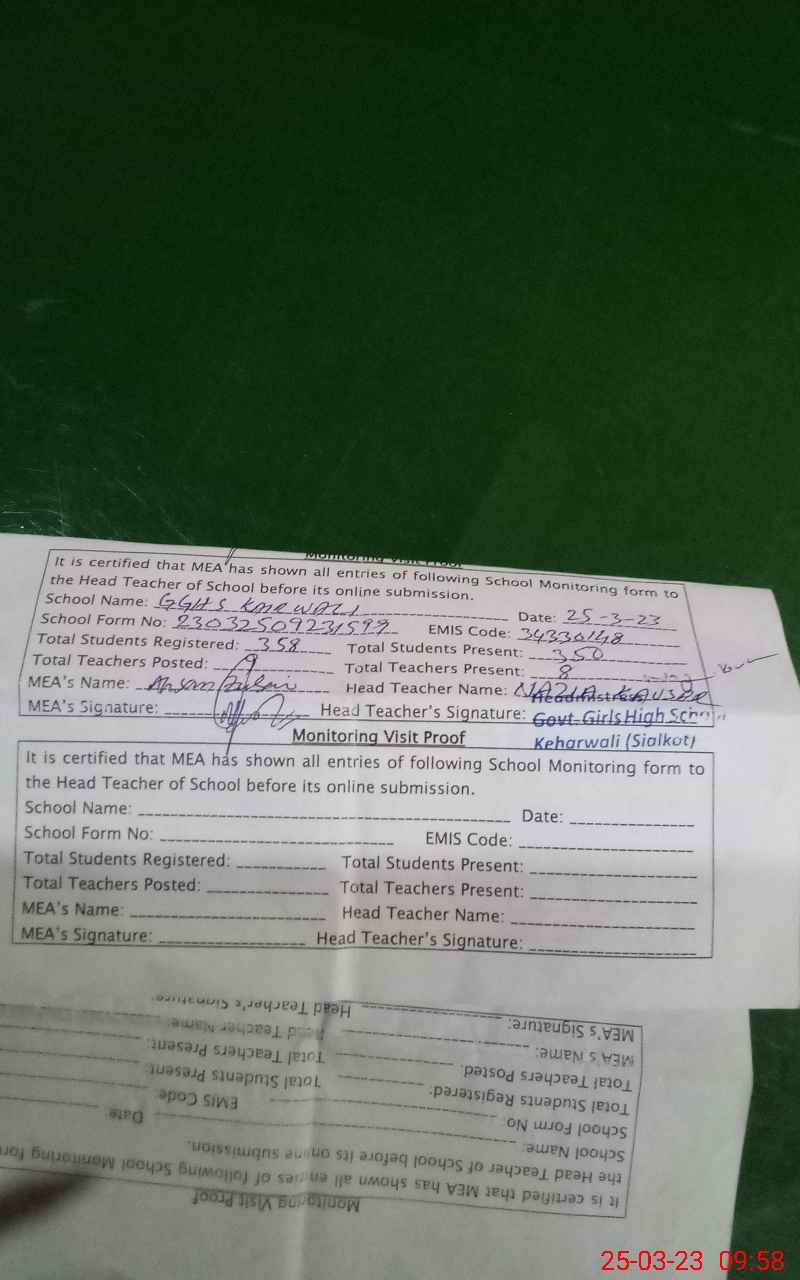 Monitoring Visit Proof
It is certified that MEA has shown all entries of following School Monitoring form to
the Head Teacher of School before its online submission.
School Name: GGHS KHRWALI Date: 25-3-23
School Form No: 23032509231599 EMIS Code: 34330148
Total Students Registered: 358 Total Students Present: 350
Total Teachers Posted: 9 Total Teachers Present: 8
MEA's Name: Head Teacher Name: NAZIA KAUSAR
Headmistress
MEA's Signature: Head Teacher's Signature: Govt. Girls High School
Keharwali (Sialkot)
Monitoring Visit Proof
It is certified that MEA has shown all entries of following School Monitoring form to
the Head Teacher of School before its online submission.
School Name: Date:
School Form No: EMIS Code:
Total Students Registered: Total Students Present:
Total Teachers Posted: Total Teachers Present:
MEA's Name: Head Teacher Name:
MEA's Signature: Head Teacher's Signature:
Monitoring Visit Proof
It is certified that MEA has shown all entries of following School Monitoring for
the Head Teacher of School before its online submission.
School Name: Date:
School Form No: EMIS Code:
Total Students Registered: Total Students Present:
Total Teachers Posted: Total Teachers Present:
MEA's Name: Head Teacher Name:
MEA's Signature: Head Teacher's Signature:
25-03-23 09:58